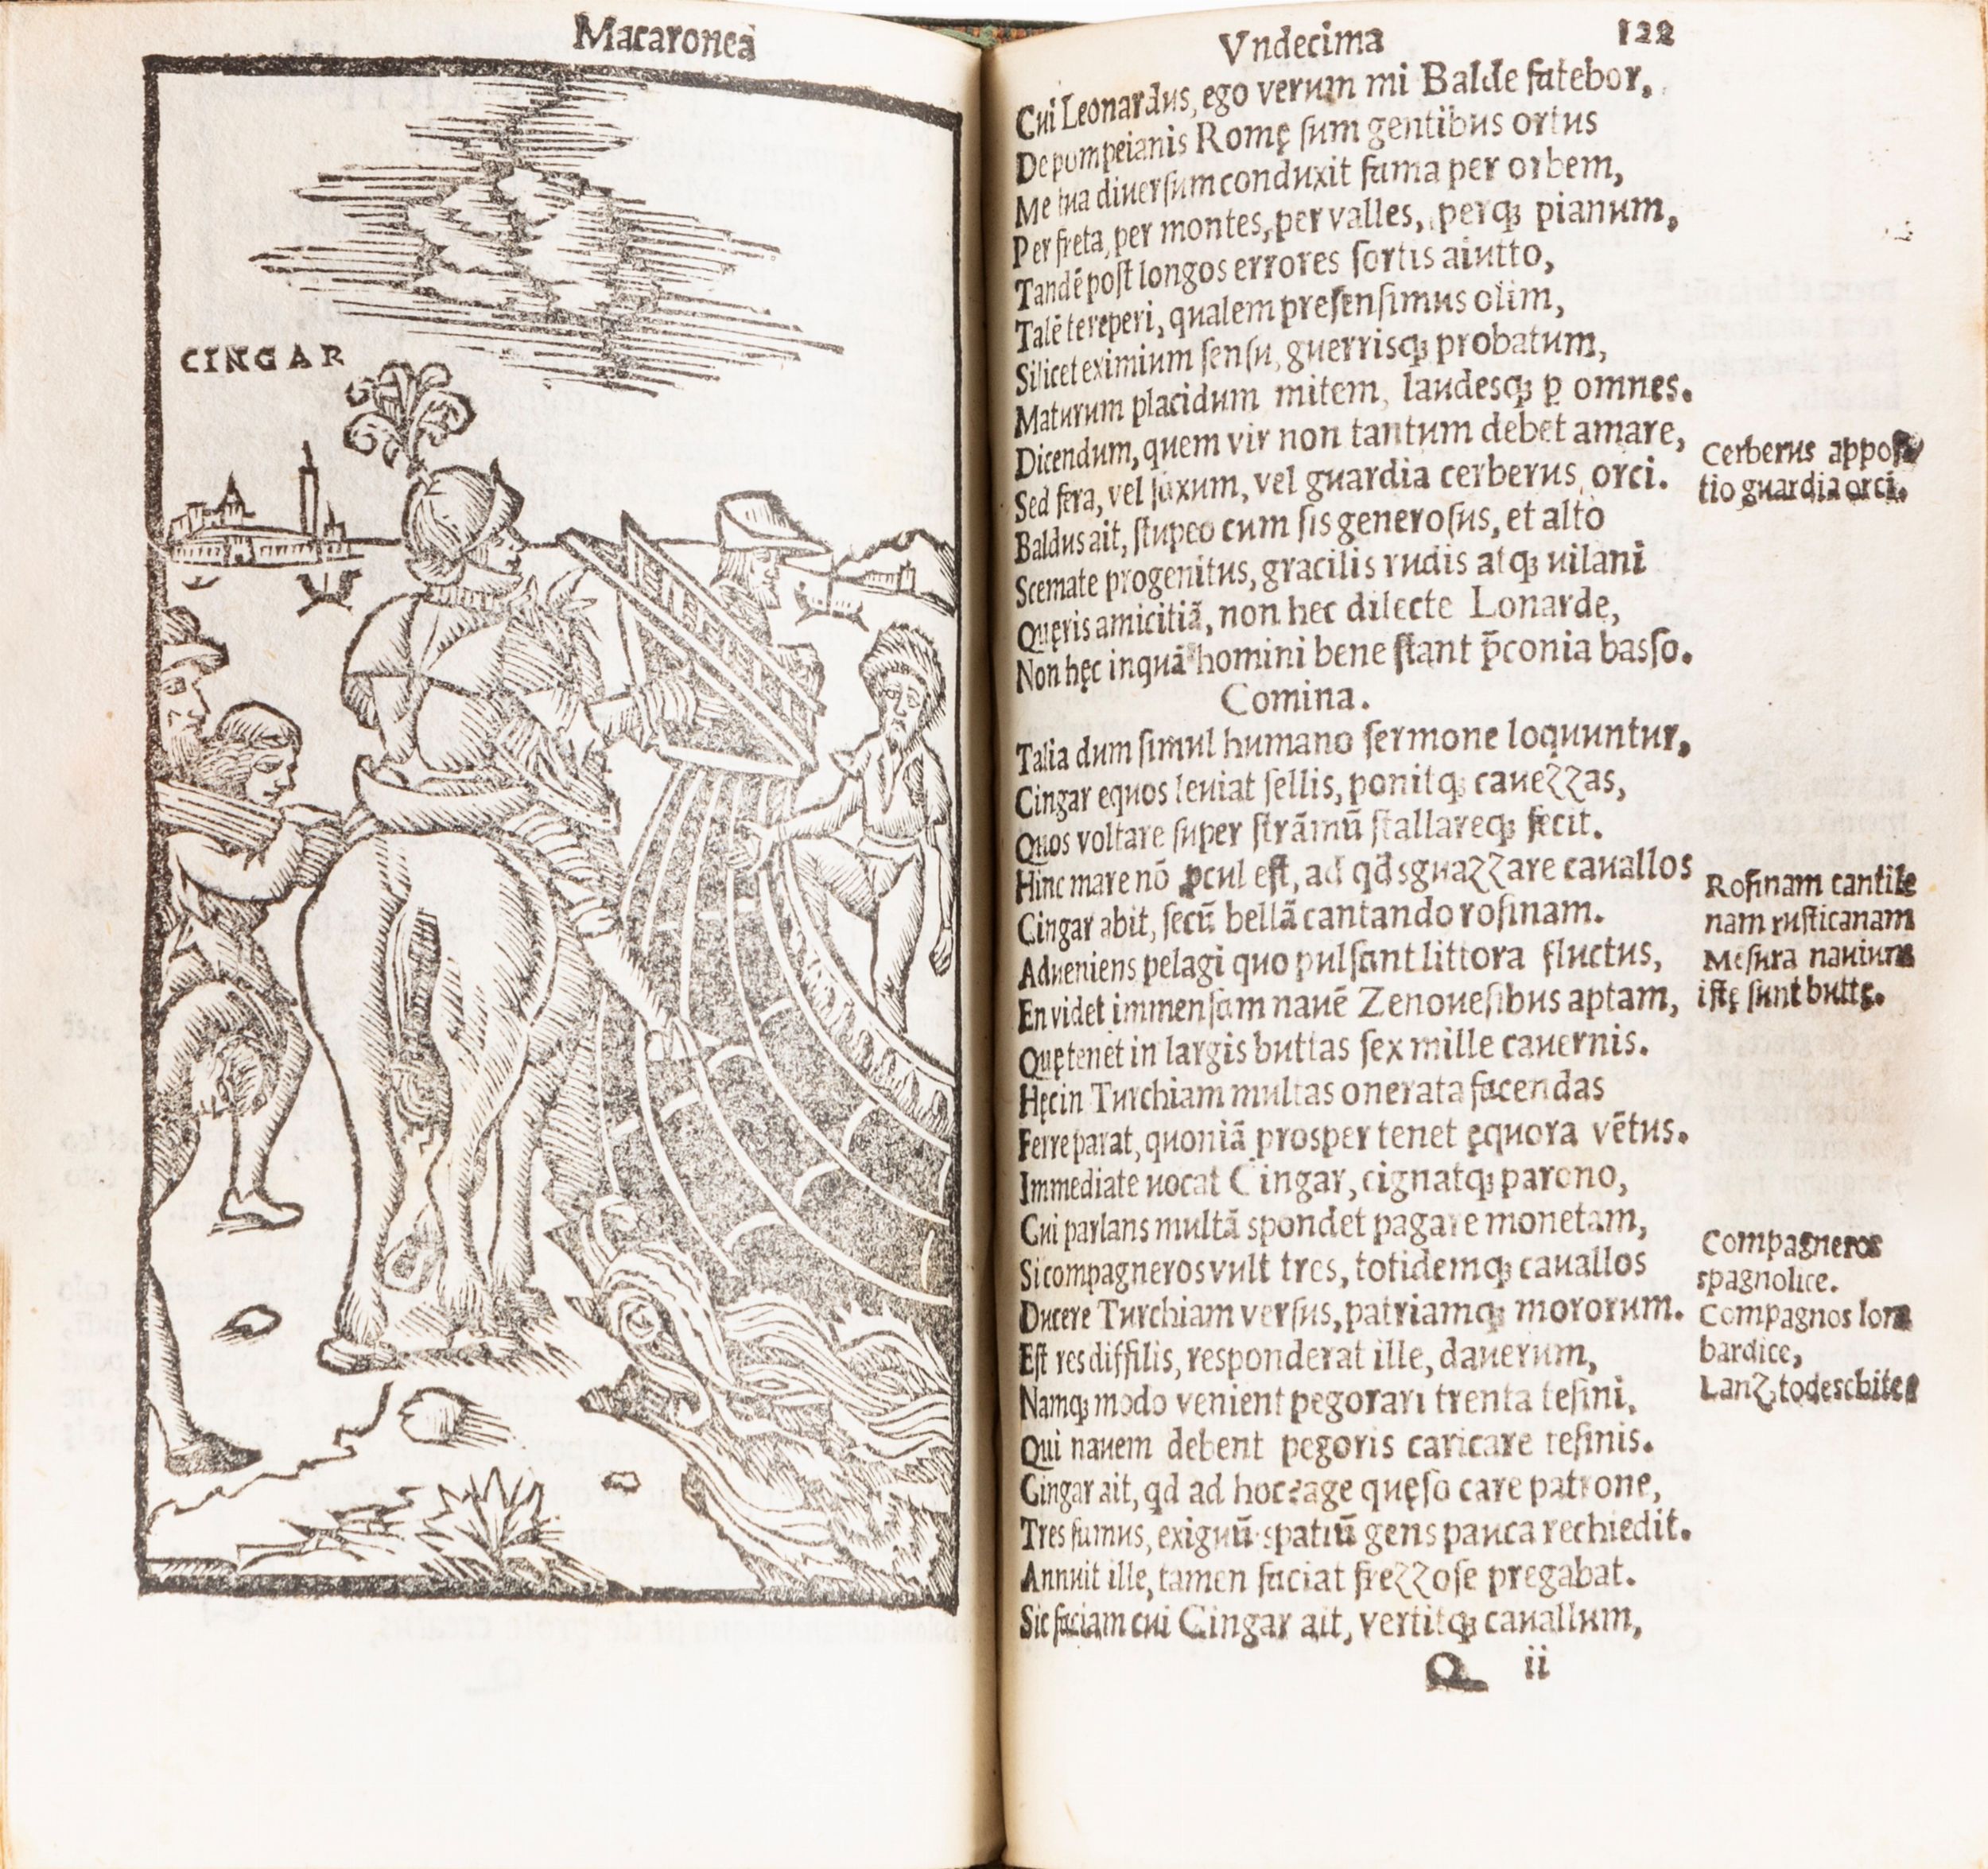 Macaronea
CINGAR
Vndecima 122
Cui Leonardus, ego verum mi Balde fatebor,
De pompeianis Romę sum gentibus ortus
Me tua diuersum conduxit fama per orbem,
Per freta, per montes, per valles, perqꝫ pianum,
Tandē post longos errores sortis aiutto,
Talē te reperi, qualem presensimus olim,
Silicet eximium sensu, guerrisqꝫ probatum,
Maturum placidum mitem, laudesqꝫ ꝑ omnes.
Dicendum, quem vir non tantum debet amare,
Sed fera, vel saxum, vel guardia cerberus orci.
Baldus ait, stupeo cum sis generosus, et alto
Scemate progenitus, gracilis rudis atqꝫ uilani
Quęris amicitiā, non hec dilecte Lonarde,
Non hęc inquā homini bene stant p̄conia basso.
Comina.
Talia dum simul humano sermone loquuntur,
Cingar equos leuiat sellis, ponitqꝫ cauezzas,
Quos voltare super strāmū stallareqꝫ fecit.
Hinc mare nō ꝓcul est, ad qd sguazzare cauallos
Cingar abit, secū bellā cantando rosinam.
Adueniens pelagi quo pulsant littora fluctus,
En videt immensam nauē Zenouesibus aptam,
Quę tenet in largis buttas sex mille cauernis.
Hęc in Turchiam multas onerata facendas
Ferre parat, quoniā prosper tenet ęquora vētus.
Immediate uocat Cingar, cignatqꝫ parono,
Cui parlans multā spondet pagare monetam,
Si compagneros vult tres, totidemqꝫ cauallos
Ducere Turchiam versus, patriamqꝫ mororum.
Est res diffilis, responderat ille, dauerum,
Namqꝫ modo venient pegorari trenta tesini,
Qui nauem debent pegoris caricare tesinis.
Cingar ait, qd ad hoc? age quęso care patrone,
Tres sumus, exiguū spatiū gens pauca rechiedit.
Annuit ille, tamen faciat frezzose pregabat.
Sic faciam cui Cingar ait, vertitqꝫ cauallum,
Q ii
Cerberus apposi
tio guardia orci.
Rosinam cantile
nam rusticanam
Mesura nauium
istę sunt buttę.
Compagneros
spagnolice.
Compagnos lom
bardice,
Lanz todeschite.